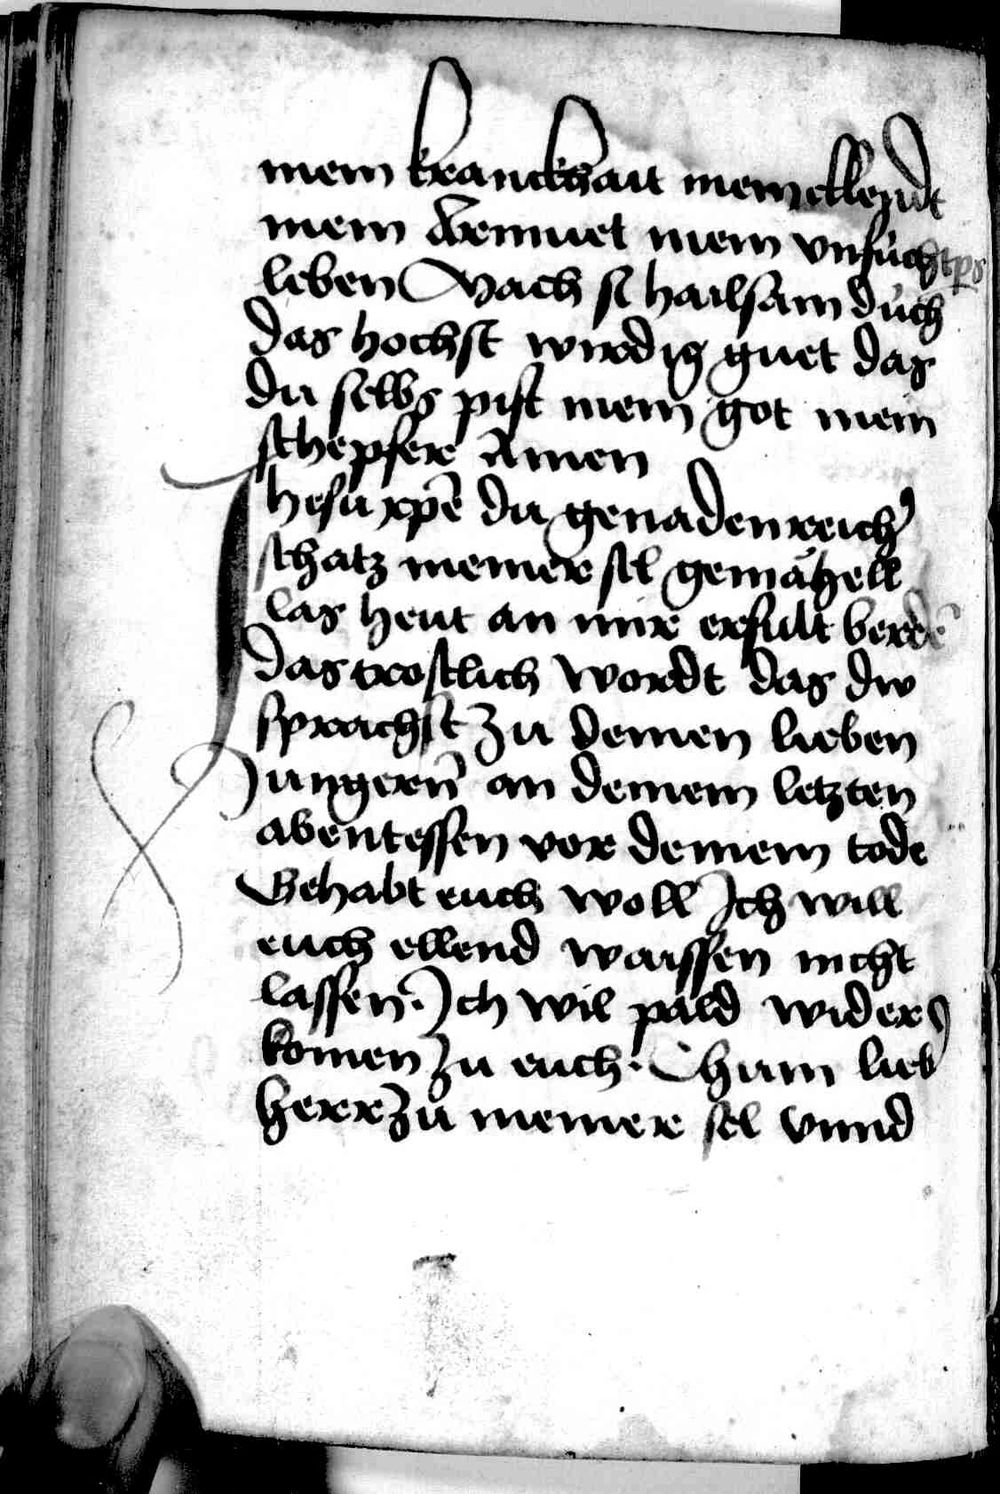 mein kranckhait mein ellendt
mein Armuet mein vnfruchtpers
leben Mach si hailsam durch
das hochst wirdig guet das
du selbs pist mein got mein
schepfere Amen
Jhesu xpē du genadenreich’
schatz meiner sel gemåhell
las heut an mir erfult berdē
das trostlich wordt das dw
sprachst zu deinen lieben
Jungern̄ an deinem letzten
abentessen vor deinem tode
Gehabt euch woll Jch will
euch ellend waissen nicht
lassen. Jch wil pald wider
komen zu euch. Chum lieb’
herr zu meiner sel vnnd